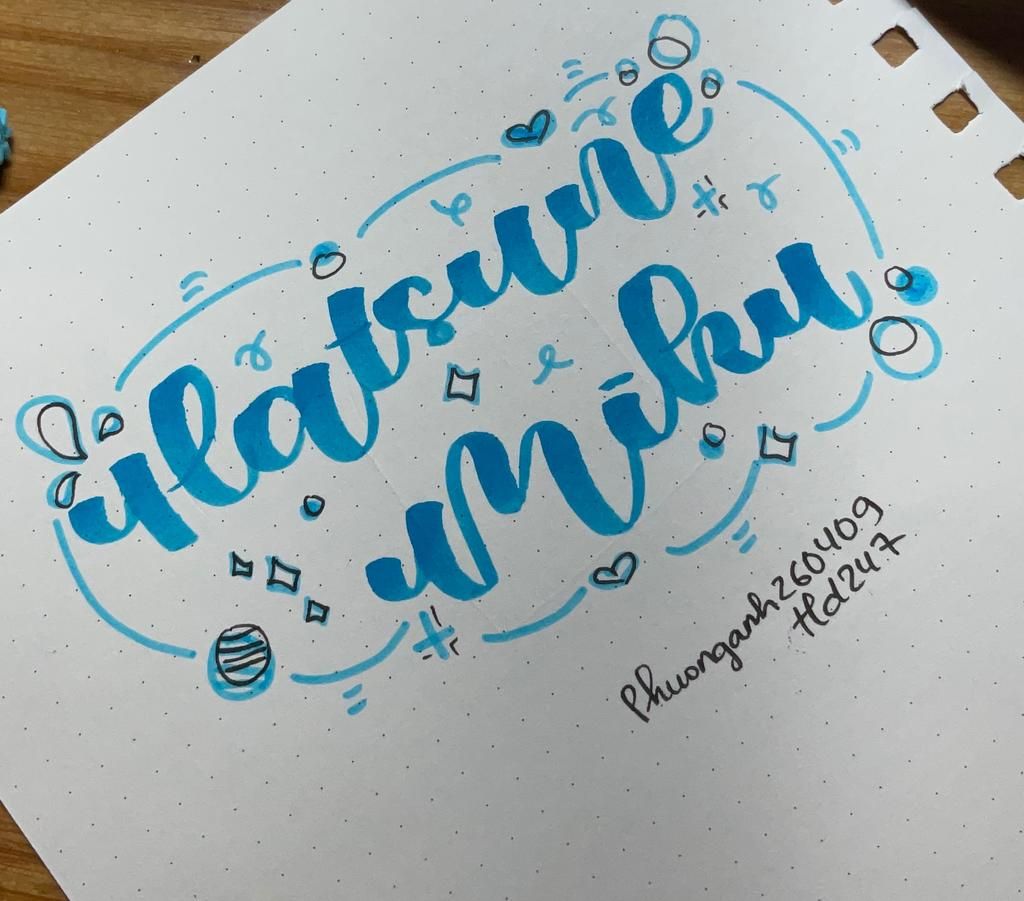 Hatsune
Miku
Phuonganh260409
Hd247